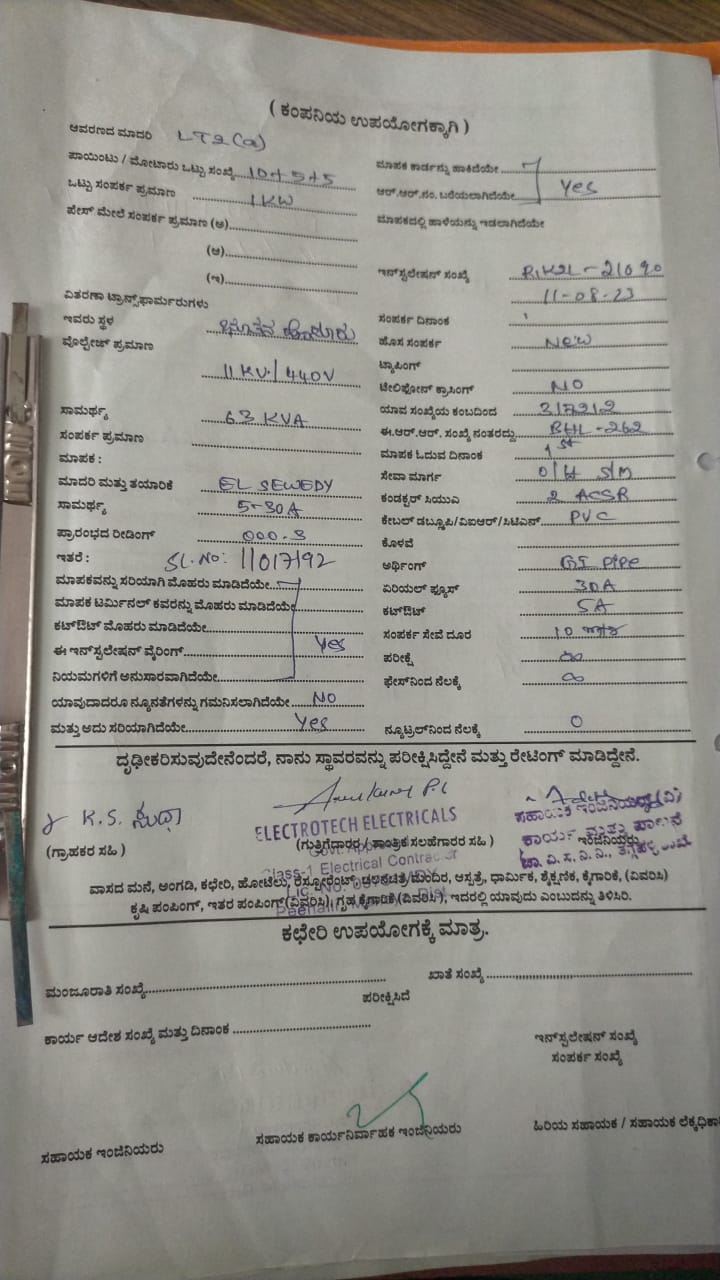 ( ಕಂಪನಿಯ ಉಪಯೋಗಕ್ಕಾಗಿ )
ಆವರಣದ ಮಾದರಿ LT2(a)
ಪಾಯಿಂಟು / ಮೋಟಾರು ಒಟ್ಟು ಸಂಖ್ಯೆ 10+5+5
ಮಾಪಕ ಕಾರ್ಡನ್ನು ಹಾಕಿದೆಯೇ
ಒಟ್ಟು ಸಂಪರ್ಕ ಪ್ರಮಾಣ 1 KW
ಆರ್.ಆರ್.ನಂ. ಬರೆಯಲಾಗಿದೆಯೇ Yes
ಪೇಸ್ ಮೇಲೆ ಸಂಪರ್ಕ ಪ್ರಮಾಣ (ಅ)
ಮಾಪಕದಲ್ಲಿ ಹಾಳೆಯನ್ನು ಇಡಲಾಗಿದೆಯೇ
(ಆ)
(ಇ)
ಇನ್‌ಸ್ಟಲೇಷನ್ ಸಂಖ್ಯೆ
11-08-23
ವಿತರಣಾ ಟ್ರಾನ್ಸ್‌ಫಾರ್ಮರುಗಳು
ಇವರು ಸ್ಥಳ
ಸಂಪರ್ಕ ದಿನಾಂಕ
ವೊಲ್ಟೇಜ್ ಪ್ರಮಾಣ 11 KV/440V
ಹೊಸ ಸಂಪರ್ಕ New
ಟ್ಯಾಪಿಂಗ್
ಟೇಲಿಫೋನ್ ಕ್ರಾಸಿಂಗ್ NO
ಸಾಮರ್ಥ್ಯ 63 KVA
ಯಾವ ಸಂಖ್ಯೆಯ ಕಂಬದಿಂದ
ಸಂಪರ್ಕ ಪ್ರಮಾಣ
ಈ.ಆರ್.ಆರ್. ಸಂಖ್ಯೆ ನಂತರದ್ದು BHL-262
ಮಾಪಕ :
ಮಾಪಕ ಓದುವ ದಿನಾಂಕ 1st
ಮಾದರಿ ಮತ್ತು ತಯಾರಿಕೆ EL SEWEDY
ಸೇವಾ ಮಾರ್ಗ O/H S/M
ಸಾಮರ್ಥ್ಯ 5-30A
ಕಂಡಕ್ಟರ್ ಸಿಯುಎ 2 ACSR
ಪ್ರಾರಂಭದ ರೀಡಿಂಗ್ 000.3
ಕೇಬಲ್ ಡಬ್ಲೂಪಿ/ವಿಐಆರ್/ಸಿಟಿಎನ್ PVC
ಇತರೆ : SL.No: 11017192
ಕೊಳವೆ
ಅರ್ಥಿಂಗ್ GI PIPE
ಮಾಪಕವನ್ನು ಸರಿಯಾಗಿ ಮೊಹರು ಮಾಡಿದೆಯೇ
ಏರಿಯಲ್ ಫ್ಯೂಸ್ 30A
ಮಾಪಕ ಟರ್ಮಿನಲ್ ಕವರನ್ನು ಮೊಹರು ಮಾಡಿದೆಯೇ
ಕಟ್‌ಔಟ್ 5A
ಕಟ್‌ಔಟ್ ಮೊಹರು ಮಾಡಿದೆಯೇ
ಸಂಪರ್ಕ ಸೇವೆ ದೂರ 10
ಈ ಇನ್‌ಸ್ಟಲೇಷನ್ ವೈರಿಂಗ್ Yes
ಪರೀಕ್ಷೆ ∞
ನಿಯಮಗಳಿಗೆ ಅನುಸಾರವಾಗಿದೆಯೇ
ಫೇಸ್‌ನಿಂದ ನೆಲಕ್ಕೆ ∞
ಯಾವುದಾದರೂ ನ್ಯೂನತೆಗಳನ್ನು ಗಮನಿಸಲಾಗಿದೆಯೇ NO
ಮತ್ತು ಅದು ಸರಿಯಾಗಿದೆಯೇ Yes
ನ್ಯೂಟ್ರಲ್‌ನಿಂದ ನೆಲಕ್ಕೆ 0
ದೃಢೀಕರಿಸುವುದೇನೆಂದರೆ, ನಾನು ಸ್ಥಾವರವನ್ನು ಪರೀಕ್ಷಿಸಿದ್ದೇನೆ ಮತ್ತು ರೇಟಿಂಗ್ ಮಾಡಿದ್ದೇನೆ.
K.S. ಸುಧಾ
ELECTROTECH ELECTRICALS
ಸಹಾಯಕ ಇಂಜಿನಿಯರ್(ವಿ)
ಕಾರ್ಯ ಮತ್ತು ಪಾಲನೆ
(ಗ್ರಾಹಕರ ಸಹಿ)
(ಗುತ್ತಿಗೆದಾರರ / ತಾಂತ್ರಿಕ ಸಲಹೆಗಾರರ ಸಹಿ)
ಇಂಜಿನಿಯರು
Class-1 Electrical Contractor
ವಾಸದ ಮನೆ, ಅಂಗಡಿ, ಕಛೇರಿ, ಹೋಟೆಲು, ರೆಸ್ಟೋರೆಂಟ್, ಚಲನಚಿತ್ರ ಮಂದಿರ, ಆಸ್ಪತ್ರೆ, ಧಾರ್ಮಿಕ, ಶೈಕ್ಷಣಿಕ, ಕೈಗಾರಿಕೆ, (ವಿವರಿಸಿ)
ಕೃಷಿ ಪಂಪಿಂಗ್, ಇತರ ಪಂಪಿಂಗ್ (ವಿವರಿಸಿ), ಗೃಹ ಕೈಗಾರಿಕೆ (ವಿವರಿಸಿ), ಇದರಲ್ಲಿ ಯಾವುದು ಎಂಬುದನ್ನು ತಿಳಿಸಿರಿ.
ಕಛೇರಿ ಉಪಯೋಗಕ್ಕೆ ಮಾತ್ರ.
ಮಂಜೂರಾತಿ ಸಂಖ್ಯೆ
ಖಾತೆ ಸಂಖ್ಯೆ
ಪರೀಕ್ಷಿಸಿದೆ
ಕಾರ್ಯ ಆದೇಶ ಸಂಖ್ಯೆ ಮತ್ತು ದಿನಾಂಕ
ಇನ್‌ಸ್ಟಲೇಷನ್ ಸಂಖ್ಯೆ
ಸಂಪರ್ಕ ಸಂಖ್ಯೆ
ಸಹಾಯಕ ಇಂಜಿನಿಯರು
ಸಹಾಯಕ ಕಾರ್ಯನಿರ್ವಾಹಕ ಇಂಜಿನಿಯರು
ಹಿರಿಯ ಸಹಾಯಕ / ಸಹಾಯಕ ಲೆಕ್ಕಧಿಕಾ